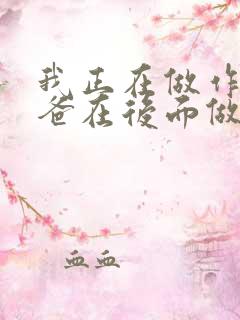 我正在做作
爸在後面做
血血